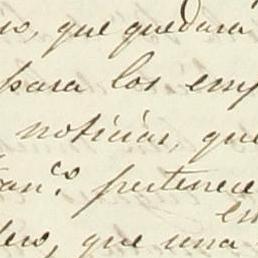 que quedará
para los emp
noticias, que
Fran.co pertenece
en
dero, que una